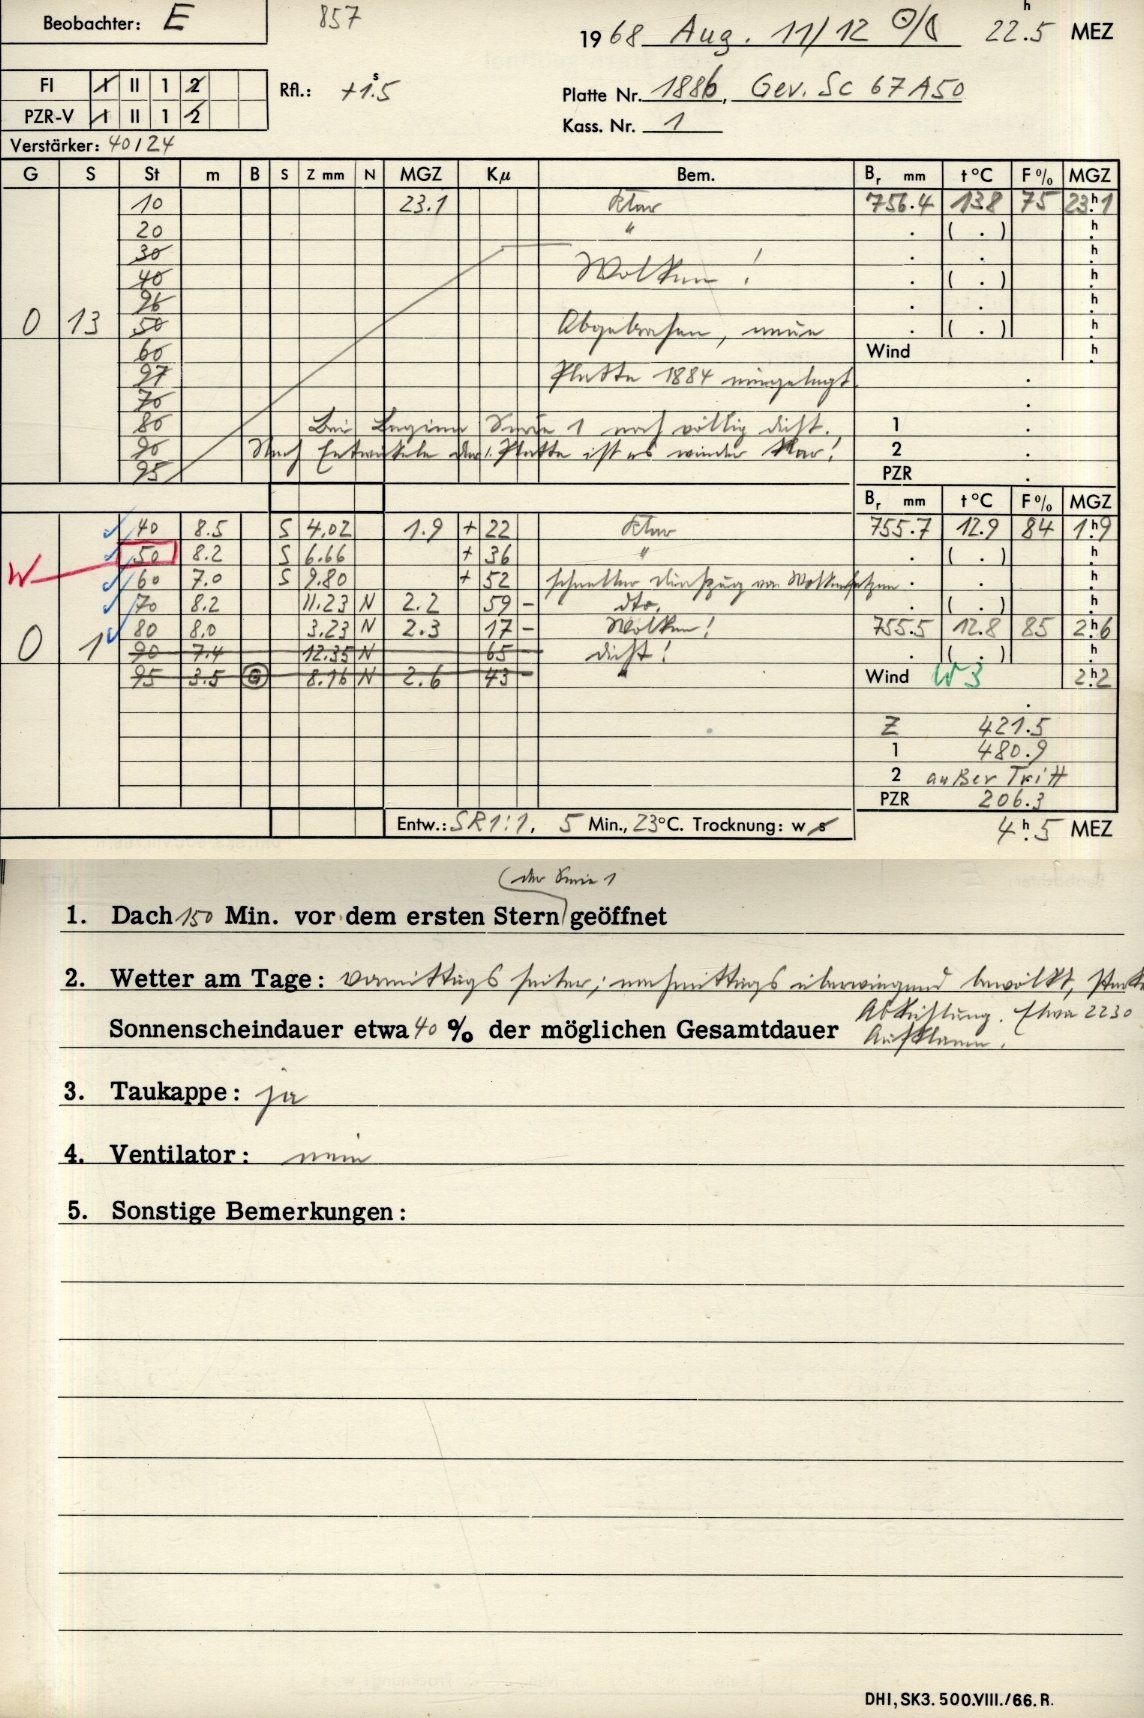 Beobachter: E
857
1968 Aug. 11/12 ☉/☾ 22ʰ.5 MEZ
FI I II 1 2
PZR-V I II 1 2
Rfl.: +1ˢ.5
Platte Nr. 1886, Gev. Sc 67A50
Kass. Nr. 1
Verstärker: 40/24
G S St m B S Z mm N MGZ Kμ Bem. Bᵣ mm t°C F% MGZ
10 23.1 klar 756.4 13.8 75 23ʰ.1
20 " . ( . ) ʰ
30 . . ʰ
40 Wolken! . ( . ) ʰ
96 . . ʰ
0 13 50 Abgebrochen, neue . ( . ) ʰ
60 Wind ʰ
97 Platte 1884 eingelegt.
70
80 Bei Beginn Serie 1 noch völlig dicht. 1
90 Nach Entwickeln der 1. Platte ist es wieder klar! 2
95 PZR
Bᵣ mm t°C F% MGZ
40 8.5 S 4.02 1.9 + 22 klar 755.7 12.9 84 1ʰ.9
50 8.2 S 6.66 + 36 " . ( . ) ʰ
W 60 7.0 S 9.80 + 52 schneller Durchzug von Wolkenfetzen . . ʰ
70 8.2 11.23 N 2.2 59 - dto. . ( . ) ʰ
80 8.0 3.23 N 2.3 17 - Wolken! 755.5 12.8 85 2ʰ.6
0 1 90 7.4 12.35 N 65 - dicht! . ( . ) ʰ
95 3.5 G 8.16 N 2.6 43 - " Wind W 3 2ʰ.2
Z 421.5
1 480.9
2 außer Tritt
PZR 206.3
Entw.: SR1:1, 5 Min., 23°C. Trocknung: w s
4ʰ.5 MEZ
der Serie 1
1. Dach 150 Min. vor dem ersten Stern geöffnet
2. Wetter am Tage: vormittags heiter; nachmittags überwiegend bewölkt, starke
Abkühlung. Etwa 2230
Sonnenscheindauer etwa 40 % der möglichen Gesamtdauer Aufklaren.
3. Taukappe: ja
4. Ventilator: nein
5. Sonstige Bemerkungen:
DHI, SK3. 500.VIII./66. R.